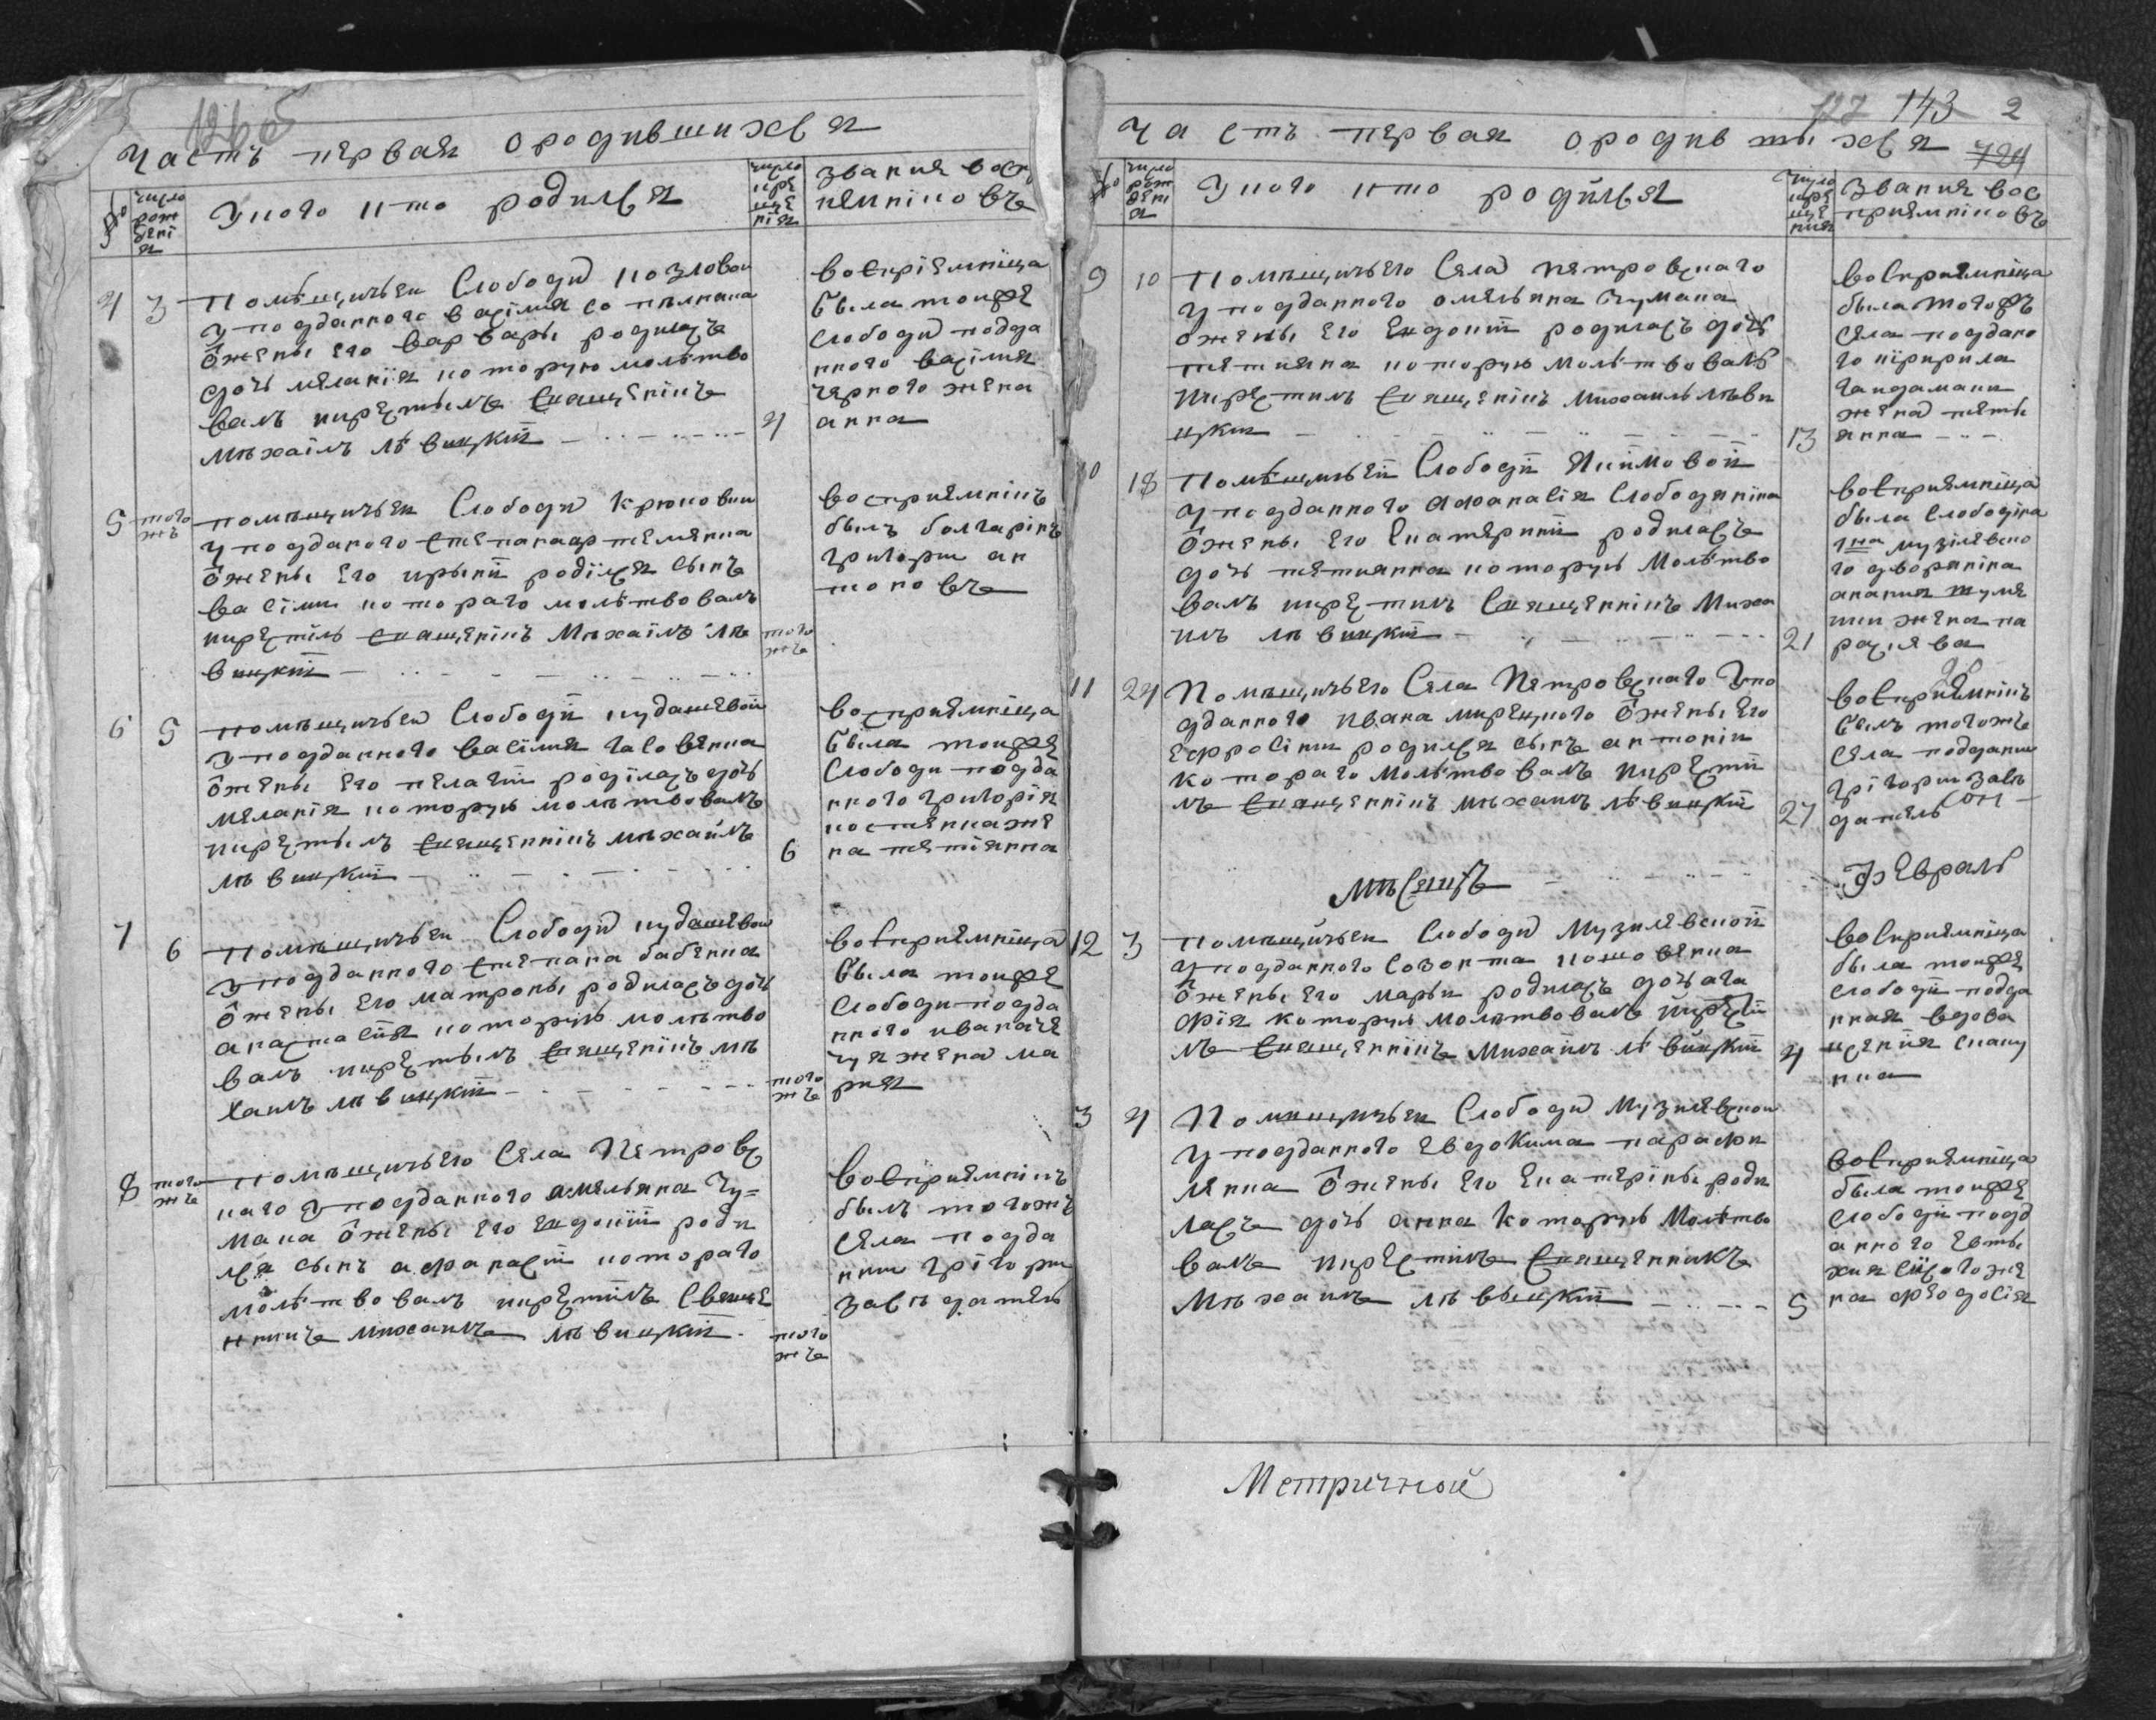 126 об
Часть первая ородившихся
№
число рождения
Укого кто родился
число крещения
звания восприемниковъ
4
3
Помѣщичьеи Слободи Козловои
уподданного васілия
ѡжены его варвары родилась
дочь меланія которую молитво
валъ икрестилъ священікъ
михаілъ лѣвицкій
4
восприемніца
была тоиже
Слободи подда
нного василия
черного жена
анна
5
того жъ
помѣщичьеи Слободи Крюковки
уподданого степана артеменка
ѡжены его ирыни родился сынъ
василии которого молитвовалъ
икрестилъ священікъ михаилъ лѣ
вицкій
того же
восприемнікъ
былъ болгарінъ
григории ан
тоновъ
6
5
помѣщичьеи Слободи кудашевой
уподданного василия гавовенка
ѡжены его пелагіи родилась дочь
меланія которую молитвовалъ
икрестылъ священникъ михаилъ
лѣвицкій
6
восприемніца
была тоиже
Слободи подда
нного григорія
костенка же
на тетіянна
7
6
помѣщичьеи Слободи кудашевои
уподданного степана бабенка
ѡжены его матроны родилась дочь
анастасія которую молитво
валъ икрестылъ священікъ ми
хаилъ лѣвицкій
того же
восприемніца
была тоиже
Слободи подда
нного ивана
жена ма
рия
8
того же
помѣщичьего Села Петровс
каго уподданного амельяна Чу=
мака ѡжены его евдокіи роди
лся сынъ афанасій которого
молитвовалъ икрестилъ Священ
никъ михаилъ лѣвицкій
того же
восприемнікъ
былъ тогожъ
Села подда
нии грігории
завѣдатель
127 143 2
724
Часть первая ородившыхся
№
число рождения
Укого кто родился
число крещения
Звания восприемниковъ
9
10
Помѣщичьего Села петровского
уподданного омельяна чумака
ѡжены его Евдокіи родилась дочь
тетияна которую молитвовалъ
икрестилъ священікъ михаилъ лѣви
цкии
13
восприемніца
была тогожъ
Села поддано
го кіририла
гайдамаки
жена теты
янна
10
18
Помѣщичьей Слободи Якимовой
уподданного Афанасія Слободяніка
ѡжены его Екатерини родилась
дочь тетиянна которую молитво
валъ икрестилъ Священникъ Миха
илъ лѣвицкій
21
восприемніца
была Слободіка
музілевско
го дворяніна
жена па
расіева
11
24
Помѣщичьего Села Петровского Упо
дданного ивана мирецкого ѡжены его
Ефросіни родился сынъ антоніи
которого молитвовалъ икрести
лъ священникъ михаилъ лѣвицкій
27
восприемнікъ
былъ тогоже
Села поддании
грігории завѣ
датель
Мѣсяцъ
Февраль
12
3
помѣщичьеи Слободи Музилевской
уподданного Созонта кошовенка
ѡжены его марьи родилась дочь ага
фія которую молитвовалъ икрести
лъ священникъ Михаилъ лѣвицкій
4
восприемніца
была тоиже
Слободи подда
нная вдова
3
4
Помѣщичьеи Слободи Музилевскои
уподданного Евдокима парафи
ленка ѡжены его Екатеріны роди
лась дочь анна Которую молитво
валъ икрестилъ Священникъ
Михаилъ лѣвыцкій
5
восприемніца
была тоиже
Слободи подд
анного Евты
хия же
на феодосія
Метричной